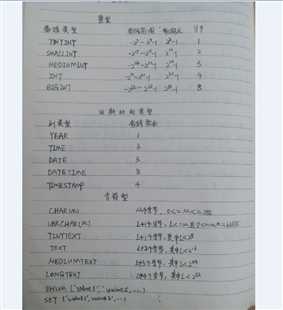 整型
数据类型 存储范围 字节
TINYINT -2⁷~2⁷-1 2⁸-1 1
SMALLINT -2¹⁵~2¹⁵-1 2¹⁶-1 2
MEDIUMINT -2²³~2²³-1 2²⁴-1 3
INT -2³¹~2³¹-1 2³²-1 4
BIGINT -2⁶³~2⁶³-1 2⁶⁴-1 8
日期时间类型
列类型 存储需求
YEAR 1
TIME 3
DATE 3
DATETIME 8
TIMESTAMP 4
字符型
CHAR(M)
VARCHAR(M) L+1个字节
TINYTEXT L+1个字节,其中L<2⁸
TEXT L+2个字节,其中L<2¹⁶
MEDIUMTEXT L+3个字节,其中L<2²⁴
LONGTEXT L+4个字节,其中L<2³²
ENUM('value1','value2',...)
SET('value1','value2',...)